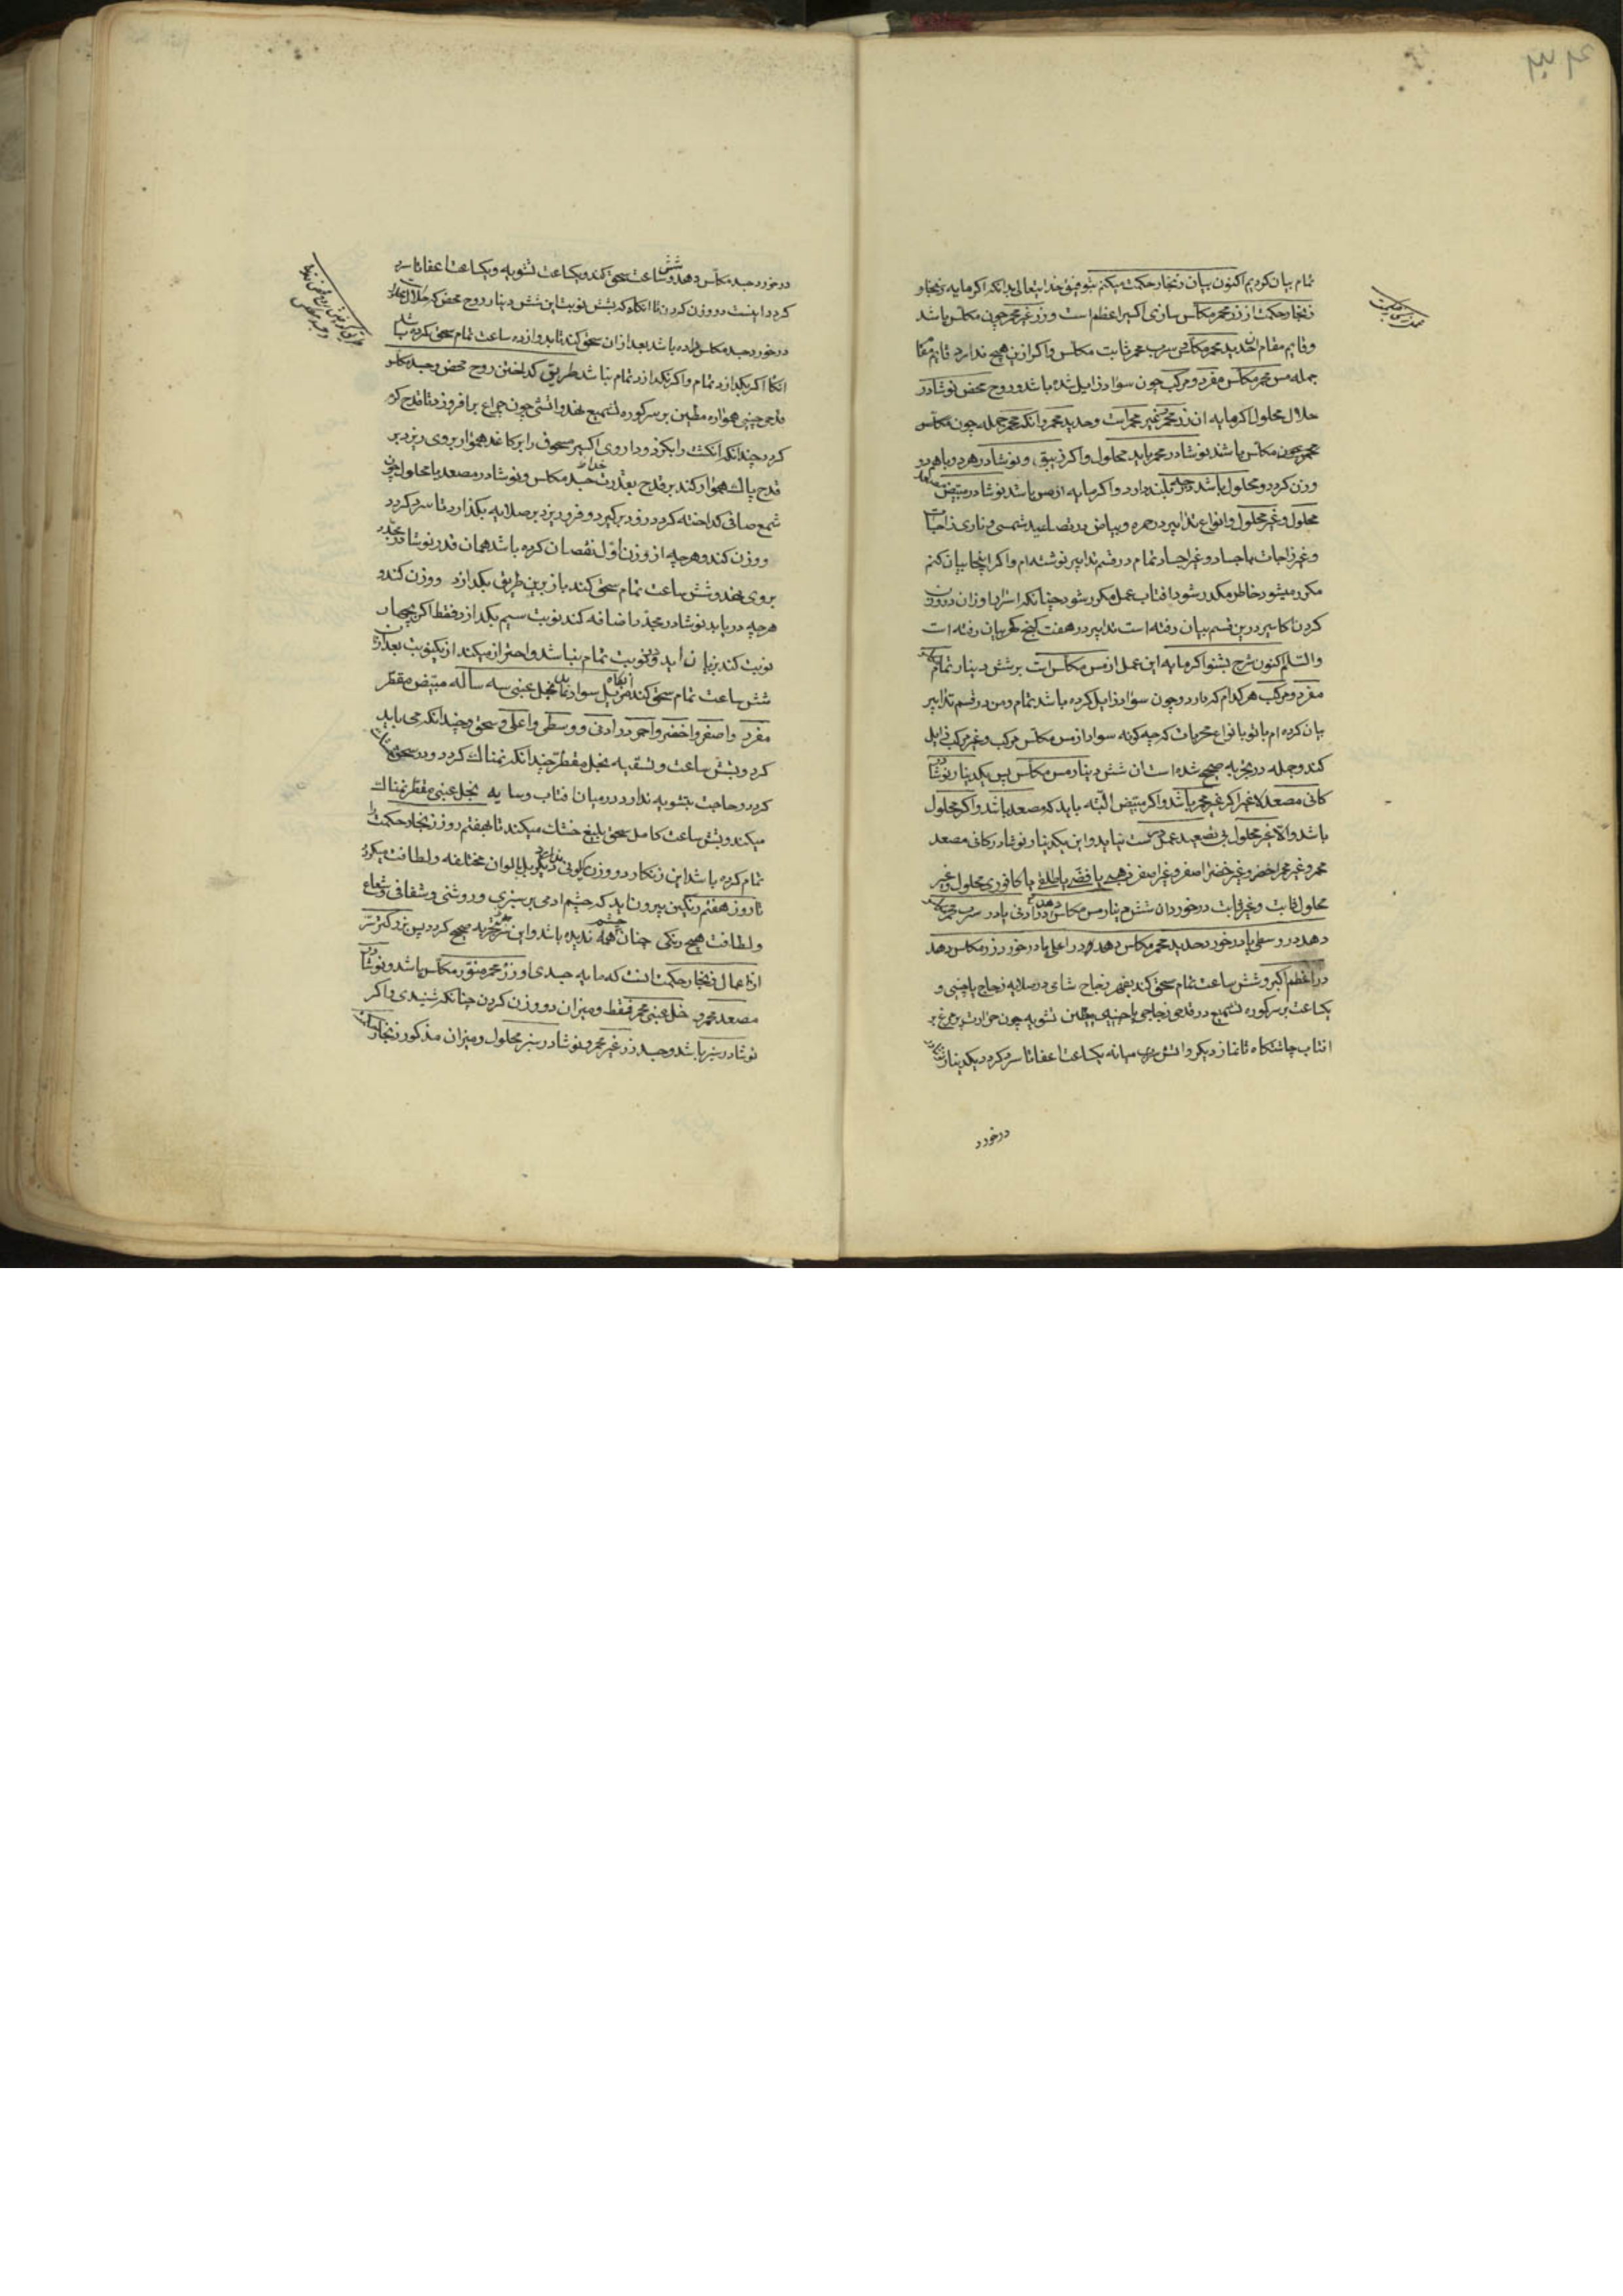 ۳۳۴
تمام بیان کردیم اکنون بیان زنجار حکمت میکنم بتوفیق خدایتعالی بدانکه اکر مایه زنجار و
زنجار حکمت از زر محمر مکلس سازی اکسیر اعظم است و زر غیر محمر چون مکلس باشد
و قایم مقام حدید محمر مکلس سرب محمر ثابت مکلس و اکر ازین هیچ ندارد قایم مقام
جمله مس محمر مکلس مفرد و مرکب چون سواد زایل شده باشد و روح محض نوشادر
حلال محلول اکر مایه از زر محمر غیر محمر است و حدید محمر و انکه محمر جمله چون مکلس
محمر چون مکلس باشد نوشادر محمر باید محلول و اکر زیبق و نوشادر هر دو باهم دو
وزن کردد و محلول باشد بلند دارد و اکر مایه از مس باشد نوشادر مبیض
محلول و غیر محلول و انواع تدابیر در حمره و بیاض در تصاعید شمسی و ناری زاجات
و غیر زاجات باجساد و غیر اجساد تمام در قسم تدابیر نوشته‌ام و اکر اینجا بیان کنم
مکرر میشود خاطر مکدر شود افتاب عمل مکرر شود چنانکه اسرار اوزان درون
کردن اکاسیر درین قسم بیان رفته است تدابیر در هفت کنج کهر بیان رفته است
والسلام اکنون شرح بشنو اکر مایه این عمل از مس مکلس است بر شش دینار تمام
مفرد و مرکب هر کدام که دارد و چون سواد زایل کرده باشد تمام و من در قسم تدابیر
بیان کرده‌ام با تو بانواع مجربات که چه کونه سواد از مس مکلس مرکب و غیر مرکب زایل
کند و جمله در تجربه صحیح شده است ان شش دینار مس مکلس پس یکدینار نوشادر
کانی مصعد لا غیر اکر غیر محمر باشد و اکر مبیض البته باید که مصعد باشد و اکر محلول
باشد و الا غیر محلول بی تصعید عمل درست نیاید و این یکدینار نوشادر کانی مصعد
محمر و غیر محمر اخضر و غیر خضر اصفر و غیر اصفر ذهبی یا فضی یا طلقی یا کافوری محلول و غیر
محلول ثابت و غیر ثابت در خورد ان شش دینار مس مکلس دهد در ادنی یا در سرب محمر مکلس
دهد در وسطی یا در خورد حدید محمر مکلس دهد و در اعلی یا در خورد زر مکلس دهد
در اعظم اکبر و شش ساعت تمام سحق کند بفهر زجاج شامی در صلایه زجاج یا چینی و
یکساعت بر سر کوره تشمیع در قدحی زجاجی یا چینی مطین تشویه چون حرارت پر مرغ بر
افتاب چاشتکاه تا نماز دیکر و اتش میانه یکساعت اعفا تا سرد کردد یکدینار
در خورد
در خورد جسد مکلس دهد و شش ساعت سحق کند و یکساعت تشویه و یکساعت اعفا تا سرد
کردد اینست دو وزن کردن تا انکاه که بشش نوبت این شش دینار روح محض که حلال
در خورد جسد مکلس داده باشد بعد از ان سحق کند تا بدوازده ساعت تمام سحق کرده باشد
انکاه اکر بکدازد تمام و اکر نکدازد تمام نباشد طریق کداختن روح محض و جسد مکلس
قدحی چینی هموار مطین بر سر کوره تشمیع نهد و اتشی چون چراغ برافروزد تا قدح کرم
کردد چندانکه انکشت را بکزد و داروی اکسیر مسحوق را بر کاغذ هموار بروی ریزد بر
قدح پاک هموار کند بر قدح بقدرت خدا جسد مکلس و نوشادر مصعد یا محلول چون
شمع صافی کداخته کردد زود برکیرد و فرو ریزد بر صلایه بکذارد تا سرد کردد
و وزن کند و هرچه از وزن اول نقصان کرده باشد همان قدر نوشادر مجدد
بروی نهد و شش ساعت تمام سحق کند باز برین طریق بکدازد و وزن کند و
هرچه درباید نوشادر مجدد اضافه کند نوبت سیم بکدازد فقط اکر بچهار
نوبت کند بزیان اید و دو نوبت تمام نباشد و احتراز میکند از یکنوبت بعد ازان
شش ساعت تمام سحق کند انکاه مزیل سواد نماید بخل عنبی سه ساله مبیض مقطر
مفرد و اصفر و اخضر و احمر در ادنی و وسطی و اعلی و سحق چندانکه می باید
کرد و بشش ساعت و تسقیه بخل مقطر چندانکه نمناک کردد و در سحق
کردد و حاجت بتشویه ندارد در میان افتاب و سایه بخل عنبی مقطر نمناک
میکند و بشش ساعت کامل سحق بلیغ خشک میکند تا بهفتم روز زنجار حکمت
تمام کرده باشد این زنکار دو وزن بالوان مختلفه و لطافت میکردد
تا روز هفتم رنکین بیرون اید که چشم ادمی بر سبزی و روشنی و شفافی و شعاع
و لطافت هیچ رنکی چنان چشم ندیده باشد و این تجربه صحیح کردد پس بزرکترین سر
از اعمال زنجار حکمت انست که مایه جسدی او زر محمر منور مکلس باشد و نوشادر
مصعد محمر و خل عنبی محمر فقط و میزان دو وزن کردن چنانکه شنیدی و اکر
نوشادر سبز باشد و جسد زر غیر محمر و نوشادر سبز محلول و میزان مذکور زنجار